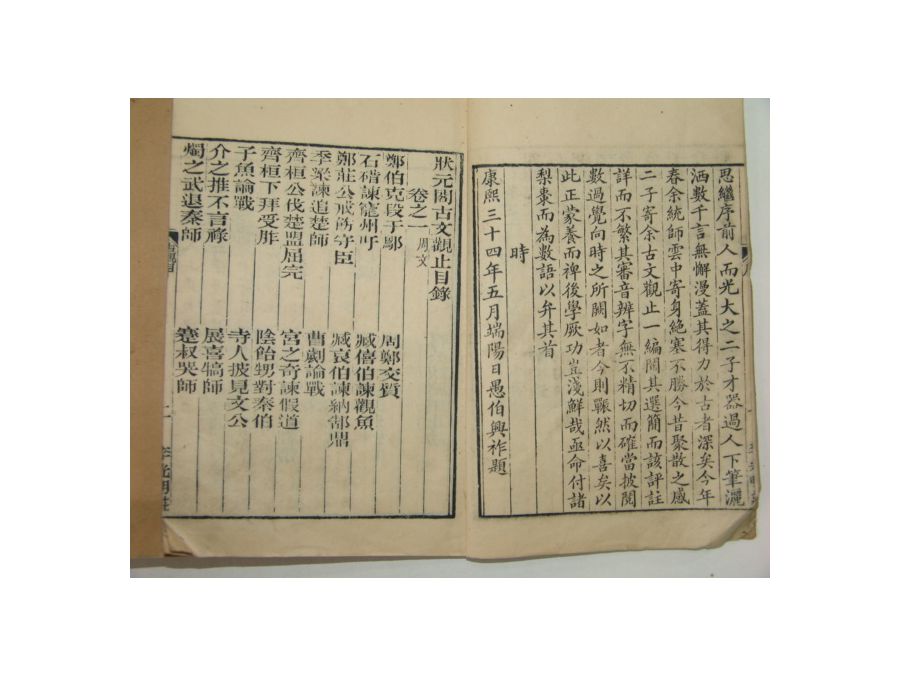 思繼序前人而光大之二子才器過人下筆灑
洒數千言無懈漫蓋其得力於古者深矣今年
春余統師雲中寄身絕塞不勝今昔聚散之感
二子寄余古文觀止一編閱其選簡而該評註
詳而不繁其審音辨字無不精切而確當披閱
數過覺向時之所闕如者今則囅然以喜矣以
此正蒙養而裨後學厥功豈淺鮮哉亟命付諸
梨棗而為數語以弁其首
時
康熙三十四年五月端陽日愚伯興祚題
狀元閣古文觀止目錄
卷之一 周文
鄭伯克段于鄢 周鄭交質
石碏諫寵州吁 臧僖伯諫觀魚
鄭莊公戒飭守臣 臧哀伯諫納郜鼎
季梁諫追楚師 曹劌論戰
齊桓公伐楚盟屈完 宮之奇諫假道
齊桓下拜受胙 陰飴甥對秦伯
子魚論戰 寺人披見文公
介之推不言祿 展喜犒師
燭之武退秦師 蹇叔哭師
李光明莊